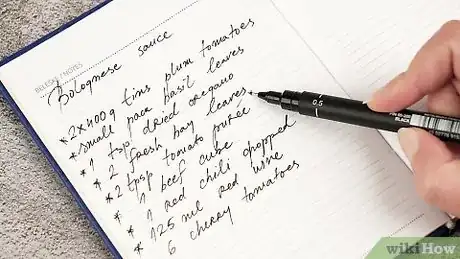 BELEŠKE / NOTES
Bolognese sauce
*2x400g tins plum tomatoes
*small pack basil leaves
* 1 tsp dried oregano
* 2 fresh bay leaves
*2 tbsp tomato purée
* 1 beef cube
* 1 red chili chopped
* 125 ml red wine
6 cherry tomatoes
0.5
BLACK
wikiHow